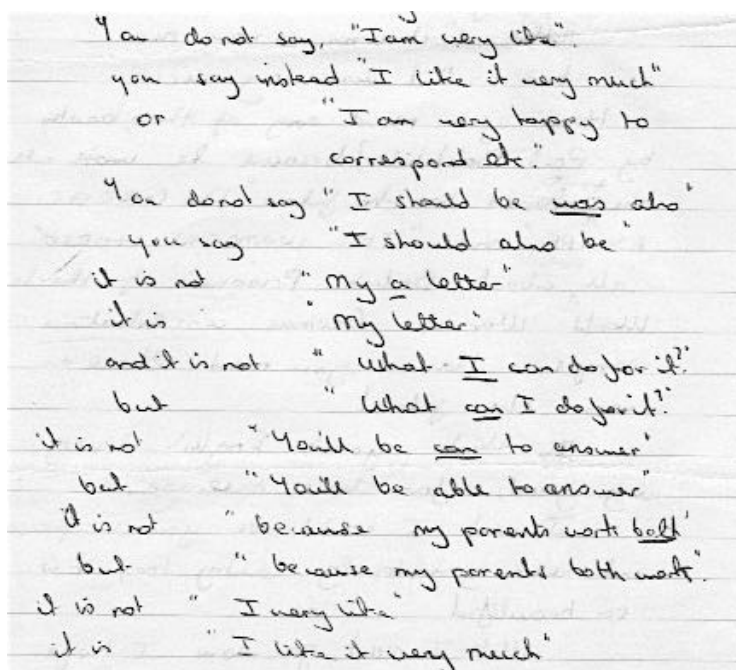 You do not say, "I am very like".
you say instead "I like it very much"
or "I am very happy to
correspond etc."
You do not say "I should be was also"
you say "I should also be"
it is not "My a letter"
it is "My letter"
and it is not "What I can do for it?"
but "What can I do for it?"
it is not "You'll be can to answer"
but "You'll be able to answer"
it is not "because my parents work both"
but "because my parents both work".
it is not "I very like"
it is "I like it very much"